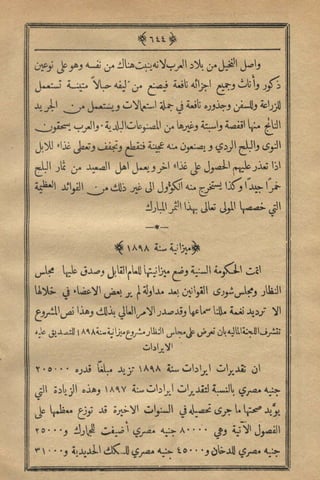 ﴿ ٦٤٤ ﴾
واصل النخيل من بلاد العرب لانه ينبت هناك من نفسه وهو على نوعين
ذكور وأناث وجميع اجزائه نافعة فيصنع من ليفه حبالاً متينة تستعمل
للزراعة وللسفن وجذوره نافعة في جملة استعمالات ويستعمل من الجريد
الناتج منها اقفصة واسبتة وغيرها من المصنوعات البلدية والعرب يسحقون
النوى والبلح الردي ويصنعون منه عجينة فتقطع وتجفف وتعطى غذاء للابل
اذا تعذر عليهم الحصول على غذاء اخر ويعمل اهل الصعيد من ثمار البلح
خمرًا جيدًا وكذا يستخرج منه الكؤول الى غير ذلك من الفوائد العظيمة
التي خصصها المولى تعالى بهذا الثمر المبارك
﴿ ميزانية سنة ١٨٩٨ ﴾
اتمت الحكومة السنية وضع ميزانيتها للعام القابل وصدق عليها مجلس
النظار ومجلس شورى القوانين بعد مداولة لم ير بعض الاعضاء في خلالها
الا ترديد نغمة مللنا سماعها وقد صدر الامر العالي بذلك وهذا نص المشروع
تتشرف اللجنة المالية بان تعرض على مجلس النظار مشروع ميزانية سنة ١٨٩٨ للتصديق عليه
الايرادات
ان تقديرات ايرادات سنة ١٨٩٨ تزيد مبلغًا قدره ٢٠٥٠٠٠
جنيه مصري بالنسبة لتقديرات ايرادات سنة ١٨٩٧ وهذه الزيادة التي
يؤيد صحتها ما جرى تحصيله في السنوات الاخيرة قد توزع معظمها على
الفصول الآتية وهي ٨٠٠٠٠ جنيه مصري أضيفت للجمارك و٢٥٠٠٠
جنيه مصري للدخان و٤٥٠٠٠ جنيه مصري للسكك الحديدية و٣١٠٠٠